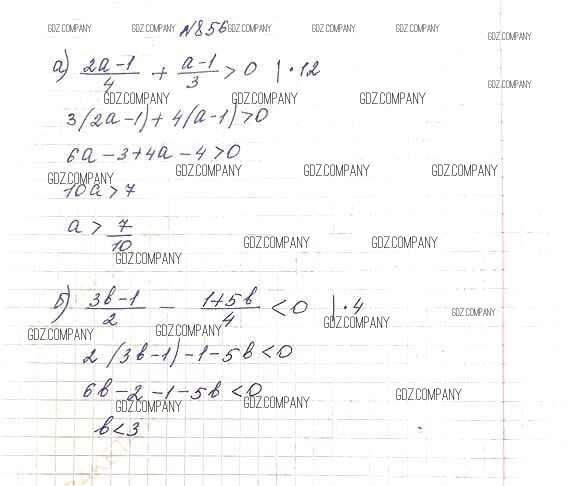 GDZ.COMPANY GDZ.COMPANY GDZ.COMPANY GDZ.COMPANY GDZ.COMPANY GDZ.COMPANY
№856
а) 2a-1/4 + a-1/3 > 0 | · 12 GDZ.COMPANY
GDZ.COMPANY GDZ.COMPANY GDZ.COMPANY
3(2a-1)+4(a-1)>0
6a-3+4a-4>0
GDZ.COMPANY GDZ.COMPANY GDZ.COMPANY GDZ.COMPANY
10a>7
a > 7/10
GDZ.COMPANY GDZ.COMPANY
GDZ.COMPANY
б) 3b-1/2 - 1+5b/4 < 0 | · 4
GDZ.COMPANY GDZ.COMPANY GDZ.COMPANY GDZ.COMPANY
2(3b-1)-1-5b<0
6b-2-1-5b<0
GDZ.COMPANY GDZ.COMPANY GDZ.COMPANY
b<3